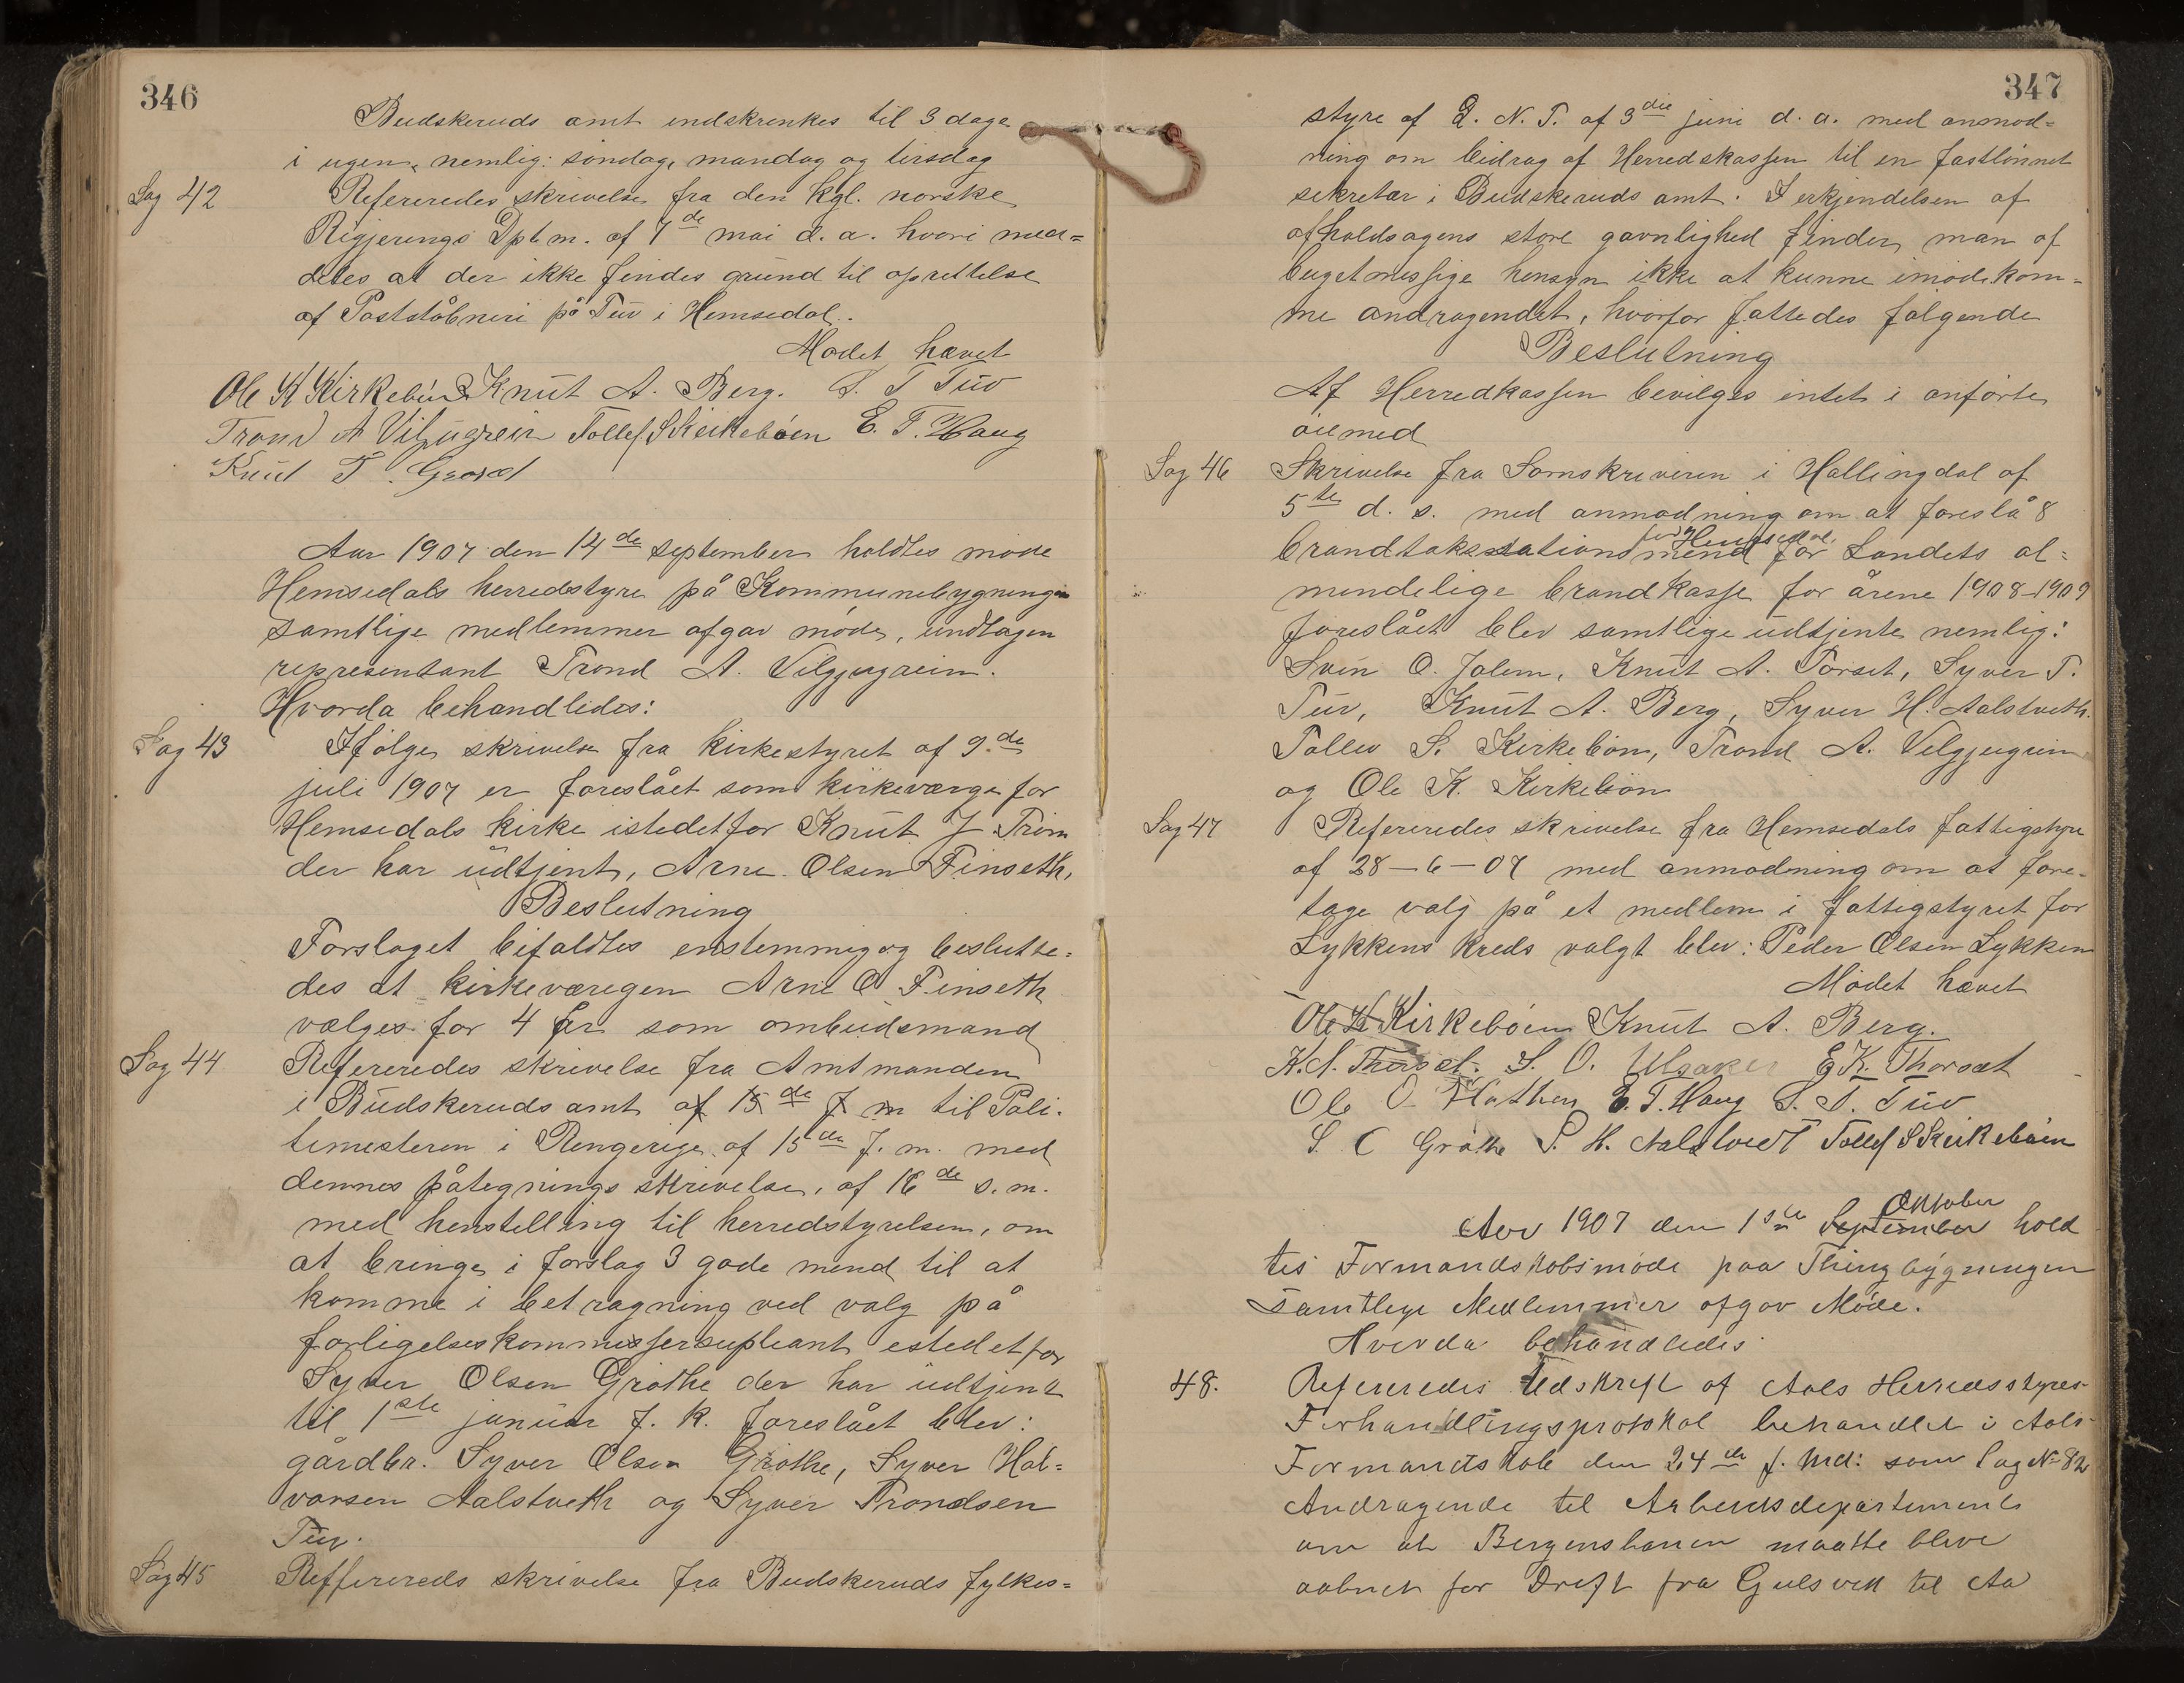 346
Budskeruds amt indskrenkes til 3 dage
i ugen, nemlig: söndag, mandag og tirsdag
Sag 42
Refereredes skrivelse fra den kgl. norske
Rigjerings Dptm. af 7de mai d. a. hvori med=
deles at der ikke findes grund til oprettelse
af Postståbneri på Tuv i Hemsedal.
Mödet hævet
Ole K Kirkeböen Knut A. Berg. S. T Tuv
Trond A Vilgugrein Tollef S Kirkeböen E. T. Haug
Knut T.
Aar 1907 den 14de september holdtes möde
Hemsedals herredstyre på Kommunebygningen
samtlige medlemmer afgav möde, undtagen
representant Trond A. Vilgjugreim.
Hvorda behandledes:
Sag 43
Ifölge skrivelse fra kirkestyret af 9.de
juli 1907 er foreslået som kirkeværge for
Hemsedals kirke istedetfor Knut J Trön
der har udtjent, Arne Olsen Finseth,
Beslutning
Forslaget bifaldtes enstemmig og beslutte=
des at kirkeværegen Arne O Finseth
vælges for 4 år som ombudsmand
Sag 44
Refereredes skrivelse fra Amtmanden
i Budskeruds amt af 15de f m til Poli-
timesteren i Rengerige af 15de f. m. med
dennes påtegnings skrivelse, af 16de s. m.
med henstelling til herredstyrelsen, om
at bringe i forslag 3 gode mend til at
komme i betragning ved valg på
forligelseskommissersupleant estedetfor
Syver Olsen Gröthe der har udtjent
til 1ste januar f. k. foreslået blev:
gårdbr. Syver Olsen Gröthe, Syver Hal=
vorsen Aalstveth og Syver Trondsen
Tuv.
Sag 45
Refferereds skrivelse fra Budskeruds fylkes=
347
styre af D. N. T. af 3die juni d. a. med anmod=
ning om bidrag af Herredskassen til en fastlönnet
sekretær i Budskeruds amt. I erkjendelsen af
afholdsagens store gavnlighed finder man af
bugetmessige hensyn ikke at kunne imödekom=
me andragendet, hvorfor fattedes følgende
Beslutning
Af Herredkassen bevilges intet i anförte
öiemed
Sag 46
Skrivelse fra Sornskriveren i Hallingdal af
5te d. s. med anmodning om at foreslå 8
for Hemsedal
brandtakssationsmend for Landets al=
mindelige brandkasse for årene 1908-1909
foreslået blev samtlige udtjente nemlig:
Svein O. Jalem, Knut A. Torset, Syver T.
Tuv, Knut A. Berg, Syver H. Aalstveth.
Tollev S. Kirkeböm, Trond A. Vilgjugreim
og Ole K. Kirkeböm
Sag 47
Refereredes skrivelse fra Hemsedals fattigstyre
af 28-6-07 med anmodning om at fore-
tage valg på et medlem i fattigstyret for
Lykkens kreds valgt blev: Peder Olsen Lykken
Mödet hævet
Ole K Kirkeböen Knut A. Berg.
K. A. Thorset. S. O. Ulsaker E. K. Thorset
Ole O. Flathen E. T. Haug S. T. Tuv
S. O Gröthe S. H. Aalstvedt Tollef S Kirkeböen
Oktober
Aar 1907 den 1ste September hold
tes Formandskabsmöde paa Thingbygningen
samtlige Medlemmer afgav Möde.
Hvorda behandledes
48.
Refereredes Udskrift af Aals Herredsstyres
Forhandlingsprotokol behandlet i Aals
Formandskab den 24de f. Md: som Sag № 82
Andragende til Arbeidsdepartements
om at Bergensbanen maatte blive
aabnet for Drift fra Gulsvik til Aa